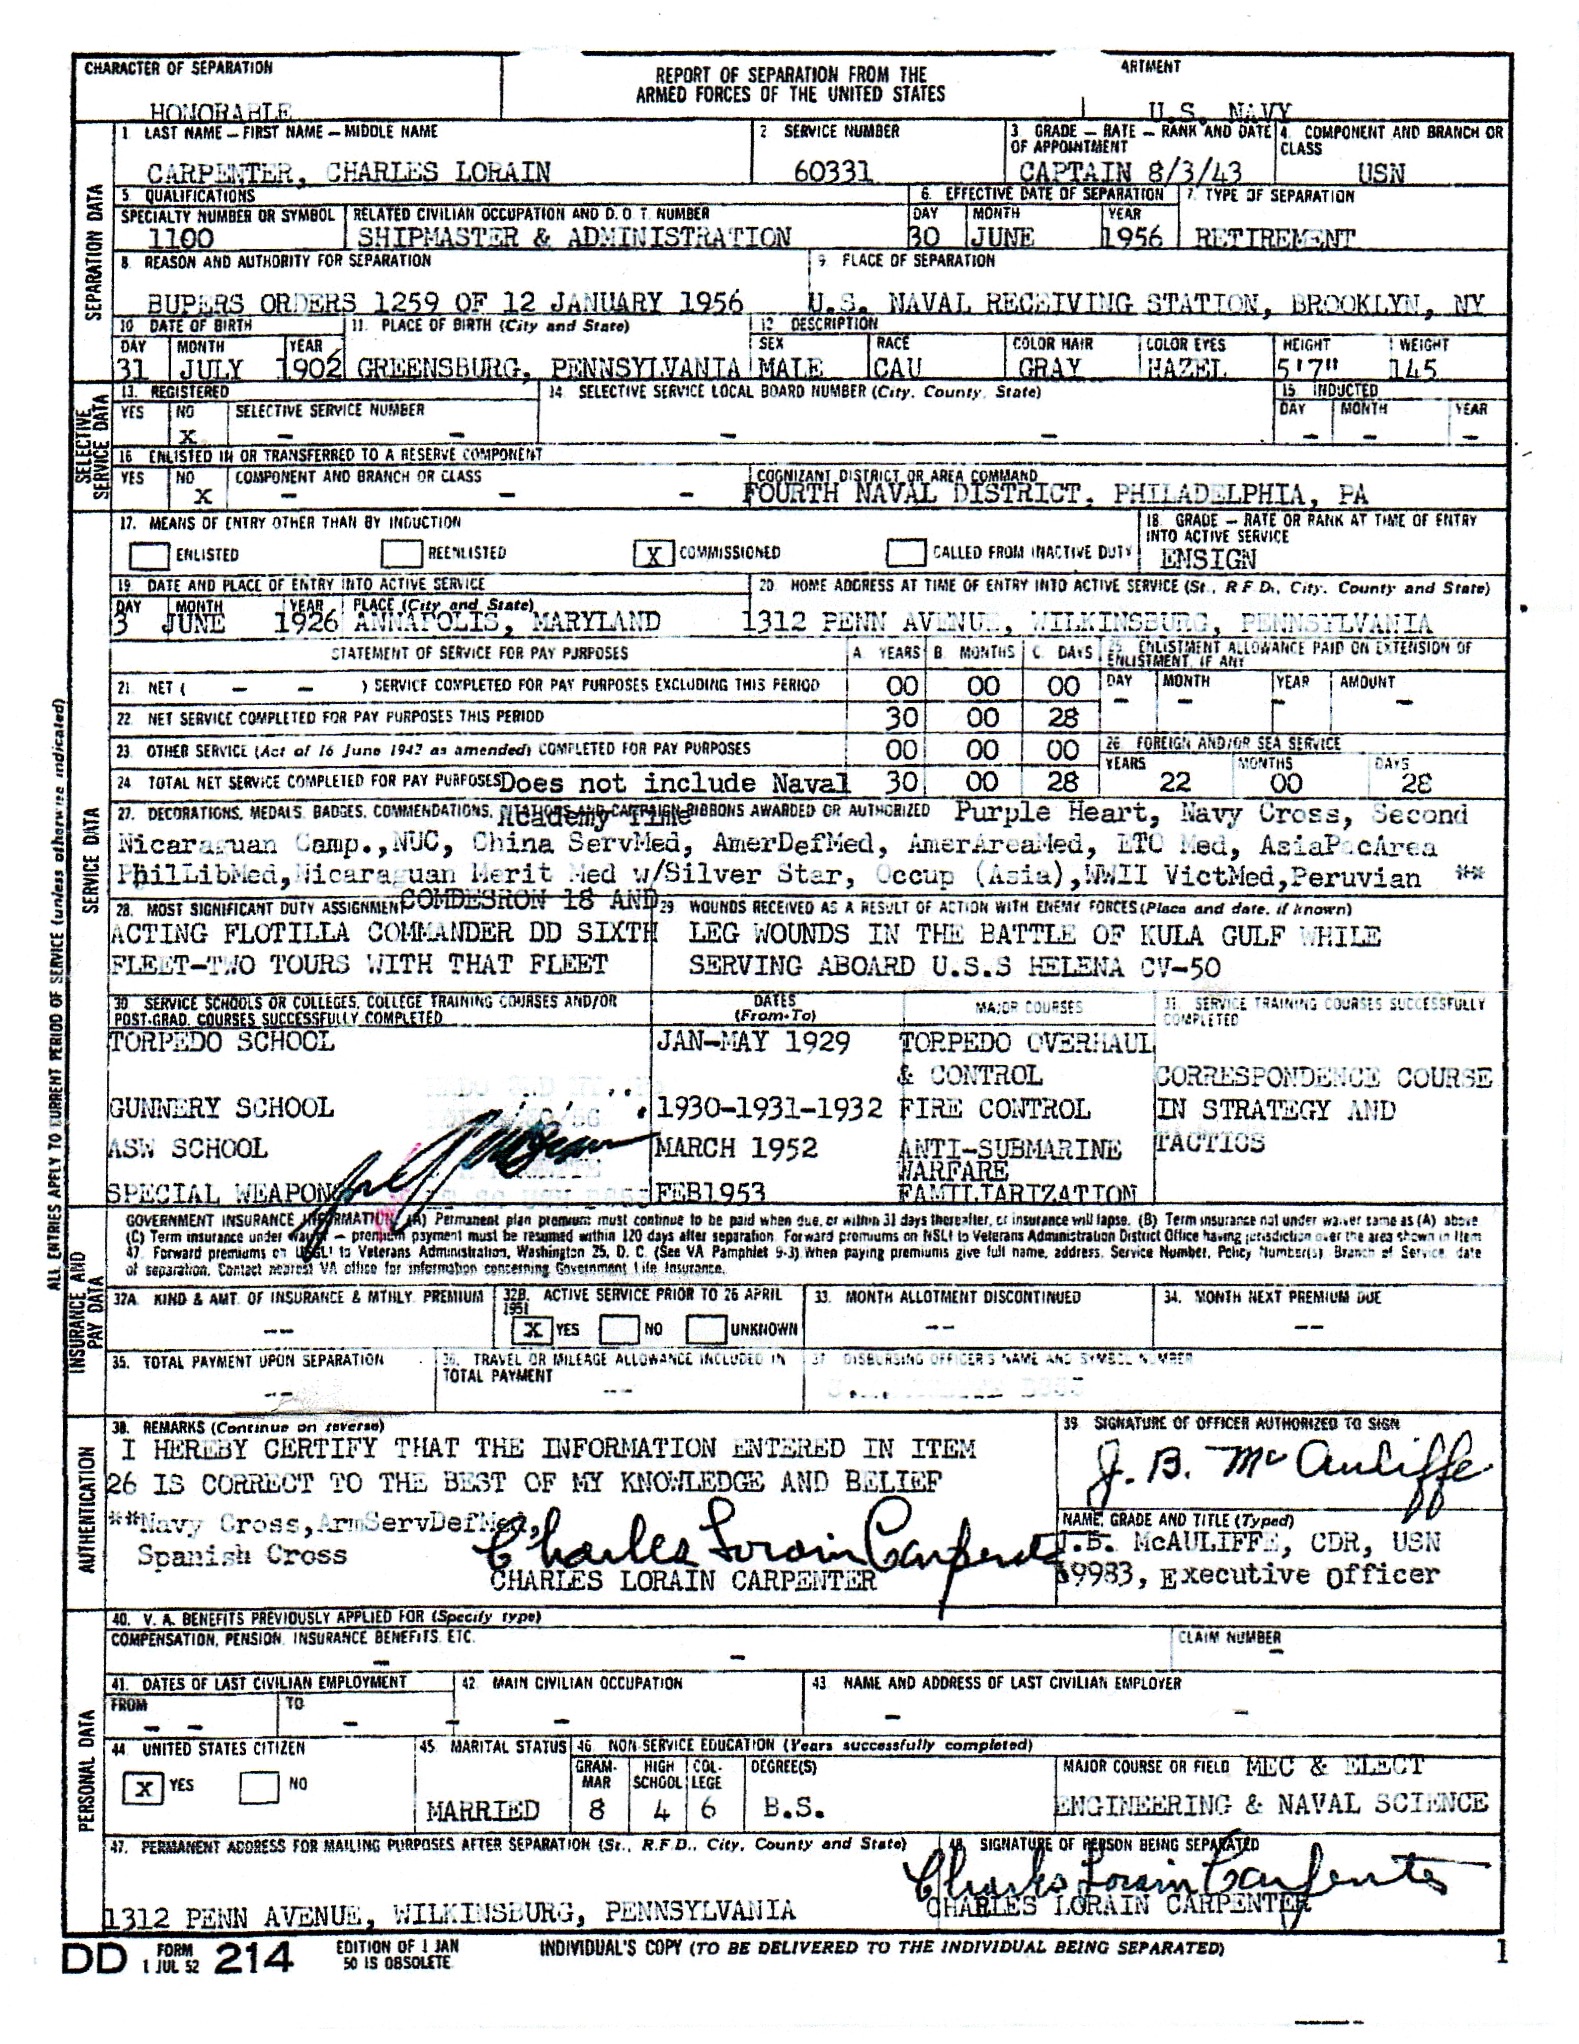 CHARACTER OF SEPARATION
HONORABLE
REPORT OF SEPARATION FROM THE
ARMED FORCES OF THE UNITED STATES
ARTMENT
U.S. NAVY
SEPARATION DATA
1. LAST NAME — FIRST NAME — MIDDLE NAME
CARPENTER, CHARLES LORAIN
2 SERVICE NUMBER
60331
3. GRADE — RATE — RANK AND DATE OF APPOINTMENT
CAPTAIN 8/3/43
4. COMPONENT AND BRANCH OR CLASS
USN
5 QUALIFICATIONS
SPECIALTY NUMBER OR SYMBOL
1100
RELATED CIVILIAN OCCUPATION AND D.O.T. NUMBER
SHIPMASTER & ADMINISTRATION
6. EFFECTIVE DATE OF SEPARATION
DAY MONTH YEAR
30 JUNE 1956
7. TYPE OF SEPARATION
RETIREMENT
8. REASON AND AUTHORITY FOR SEPARATION
BUPERS ORDERS 1259 OF 12 JANUARY 1956
9. PLACE OF SEPARATION
U.S. NAVAL RECEIVING STATION, BROOKLYN, NY
10 DATE OF BIRTH
DAY MONTH YEAR
31 JULY 1902
11. PLACE OF BIRTH (City and State)
GREENSBURG, PENNSYLVANIA
12 DESCRIPTION
SEX RACE COLOR HAIR COLOR EYES HEIGHT WEIGHT
MALE CAU GRAY HAZEL 5'7" 145
SELECTIVE SERVICE DATA
13. REGISTERED
YES NO SELECTIVE SERVICE NUMBER
X – –
14 SELECTIVE SERVICE LOCAL BOARD NUMBER (City, County, State)
– –
15 INDUCTED
DAY MONTH YEAR
– – –
16 ENLISTED IN OR TRANSFERRED TO A RESERVE COMPONENT
YES NO COMPONENT AND BRANCH OR CLASS
X – – –
COGNIZANT DISTRICT OR AREA COMMAND
FOURTH NAVAL DISTRICT, PHILADELPHIA, PA
SERVICE DATA
17. MEANS OF ENTRY OTHER THAN BY INDUCTION
ENLISTED REENLISTED X COMMISSIONED CALLED FROM INACTIVE DUTY
18. GRADE — RATE OR RANK AT TIME OF ENTRY INTO ACTIVE SERVICE
ENSIGN
19. DATE AND PLACE OF ENTRY INTO ACTIVE SERVICE
DAY MONTH YEAR PLACE (City and State)
3 JUNE 1926 ANNAPOLIS, MARYLAND
20. HOME ADDRESS AT TIME OF ENTRY INTO ACTIVE SERVICE (St., R.F.D., City, County and State)
1312 PENN AVENUE, WILKINSBURG, PENNSYLVANIA
STATEMENT OF SERVICE FOR PAY PURPOSES A. YEARS B. MONTHS C. DAYS
21. NET ( – – ) SERVICE COMPLETED FOR PAY PURPOSES EXCLUDING THIS PERIOD 00 00 00
22. NET SERVICE COMPLETED FOR PAY PURPOSES THIS PERIOD 30 00 28
23. OTHER SERVICE (Act of 16 June 1942 as amended) COMPLETED FOR PAY PURPOSES 00 00 00
24 TOTAL NET SERVICE COMPLETED FOR PAY PURPOSES Does not include Naval 30 00 28
Academy Time
25. ENLISTMENT ALLOWANCE PAID ON EXTENSION OF ENLISTMENT, IF ANY
DAY MONTH YEAR AMOUNT
– – – –
26 FOREIGN AND/OR SEA SERVICE
YEARS MONTHS DAYS
22 00 28
27. DECORATIONS, MEDALS, BADGES, COMMENDATIONS, CITATIONS AND CAMPAIGN RIBBONS AWARDED OR AUTHORIZED Purple Heart, Navy Cross, Second
Nicaraguan Camp.,NUC, China ServMed, AmerDefMed, AmerAreaMed, ETO Med, AsiaPacArea
PhilLibMed,Nicaraguan Merit Med w/Silver Star, Occup (Asia),WWII VictMed,Peruvian **
28. MOST SIGNIFICANT DUTY ASSIGNMENT COMDESRON 18 AND
ACTING FLOTILLA COMMANDER DD SIXTH
FLEET-TWO TOURS WITH THAT FLEET
29 WOUNDS RECEIVED AS A RESULT OF ACTION WITH ENEMY FORCES (Place and date, if known)
LEG WOUNDS IN THE BATTLE OF KULA GULF WHILE
SERVING ABOARD U.S.S HELENA CV-50
30 SERVICE SCHOOLS OR COLLEGES, COLLEGE TRAINING COURSES AND/OR POST-GRAD. COURSES SUCCESSFULLY COMPLETED
DATES (From-To)
MAJOR COURSES
31. SERVICE TRAINING COURSES SUCCESSFULLY COMPLETED
TORPEDO SCHOOL JAN-MAY 1929 TORPEDO OVERHAUL
& CONTROL
GUNNERY SCHOOL 1930-1931-1932 FIRE CONTROL
ASW SCHOOL MARCH 1952 ANTI-SUBMARINE
WARFARE
SPECIAL WEAPON FEB1953 FAMILIARIZATION
CORRESPONDENCE COURSE
IN STRATEGY AND
TACTICS
ALL ENTRIES APPLY TO CURRENT PERIOD OF SERVICE (unless otherwise indicated)
INSURANCE AND PAY DATA
GOVERNMENT INSURANCE INFORMATION (A) Permanent plan premium must continue to be paid when due, or within 31 days thereafter, or insurance will lapse. (B) Term insurance not under waiver same as (A) above
(C) Term insurance under waiver — premium payment must be resumed within 120 days after separation. Forward premiums on NSLI to Veterans Administration District Office having jurisdiction over the area shown in Item
47. Forward premiums on USGLI to Veterans Administration, Washington 25, D. C. (See VA Pamphlet 9-3). When paying premiums give full name, address, Service Number, Policy Number(s), Branch of Service, date
of separation. Contact nearest VA office for information concerning Government Life Insurance.
32A. KIND & AMT. OF INSURANCE & MTHLY. PREMIUM
--
32B. ACTIVE SERVICE PRIOR TO 26 APRIL 1951
X YES NO UNKNOWN
33. MONTH ALLOTMENT DISCONTINUED
--
34. MONTH NEXT PREMIUM DUE
--
35. TOTAL PAYMENT UPON SEPARATION
--
36. TRAVEL OR MILEAGE ALLOWANCE INCLUDED IN TOTAL PAYMENT
--
37 DISBURSING OFFICER'S NAME AND SYMBOL NUMBER
AUTHENTICATION
38. REMARKS (Continue on reverse)
I HEREBY CERTIFY THAT THE INFORMATION ENTERED IN ITEM
26 IS CORRECT TO THE BEST OF MY KNOWLEDGE AND BELIEF
**Navy Cross,ArmServDefMed,
Spanish Cross
Charles Lorain Carpenter
CHARLES LORAIN CARPENTER
39 SIGNATURE OF OFFICER AUTHORIZED TO SIGN
J. B. McAuliffe
NAME, GRADE AND TITLE (Typed)
J.B. McAULIFFE, CDR, USN
69983, Executive Officer
PERSONAL DATA
40. V. A. BENEFITS PREVIOUSLY APPLIED FOR (Specify type)
COMPENSATION, PENSION, INSURANCE BENEFITS, ETC.
– –
CLAIM NUMBER
–
41. DATES OF LAST CIVILIAN EMPLOYMENT
FROM TO
– – –
42 MAIN CIVILIAN OCCUPATION
– –
43 NAME AND ADDRESS OF LAST CIVILIAN EMPLOYER
– –
44. UNITED STATES CITIZEN
X YES NO
45. MARITAL STATUS
MARRIED
46. NON-SERVICE EDUCATION (Years successfully completed)
GRAM-MAR HIGH SCHOOL COL-LEGE DEGREE(S)
8 4 6 B.S.
MAJOR COURSE OR FIELD MEC & ELECT
ENGINEERING & NAVAL SCIENCE
47. PERMANENT ADDRESS FOR MAILING PURPOSES AFTER SEPARATION (St., R.F.D., City, County and State)
1312 PENN AVENUE, WILKINSBURG, PENNSYLVANIA
48. SIGNATURE OF PERSON BEING SEPARATED
Charles Lorain Carpenter
CHARLES LORAIN CARPENTER
DD FORM 1 JUL 52 214
EDITION OF 1 JAN 50 IS OBSOLETE
INDIVIDUAL'S COPY (TO BE DELIVERED TO THE INDIVIDUAL BEING SEPARATED)
1